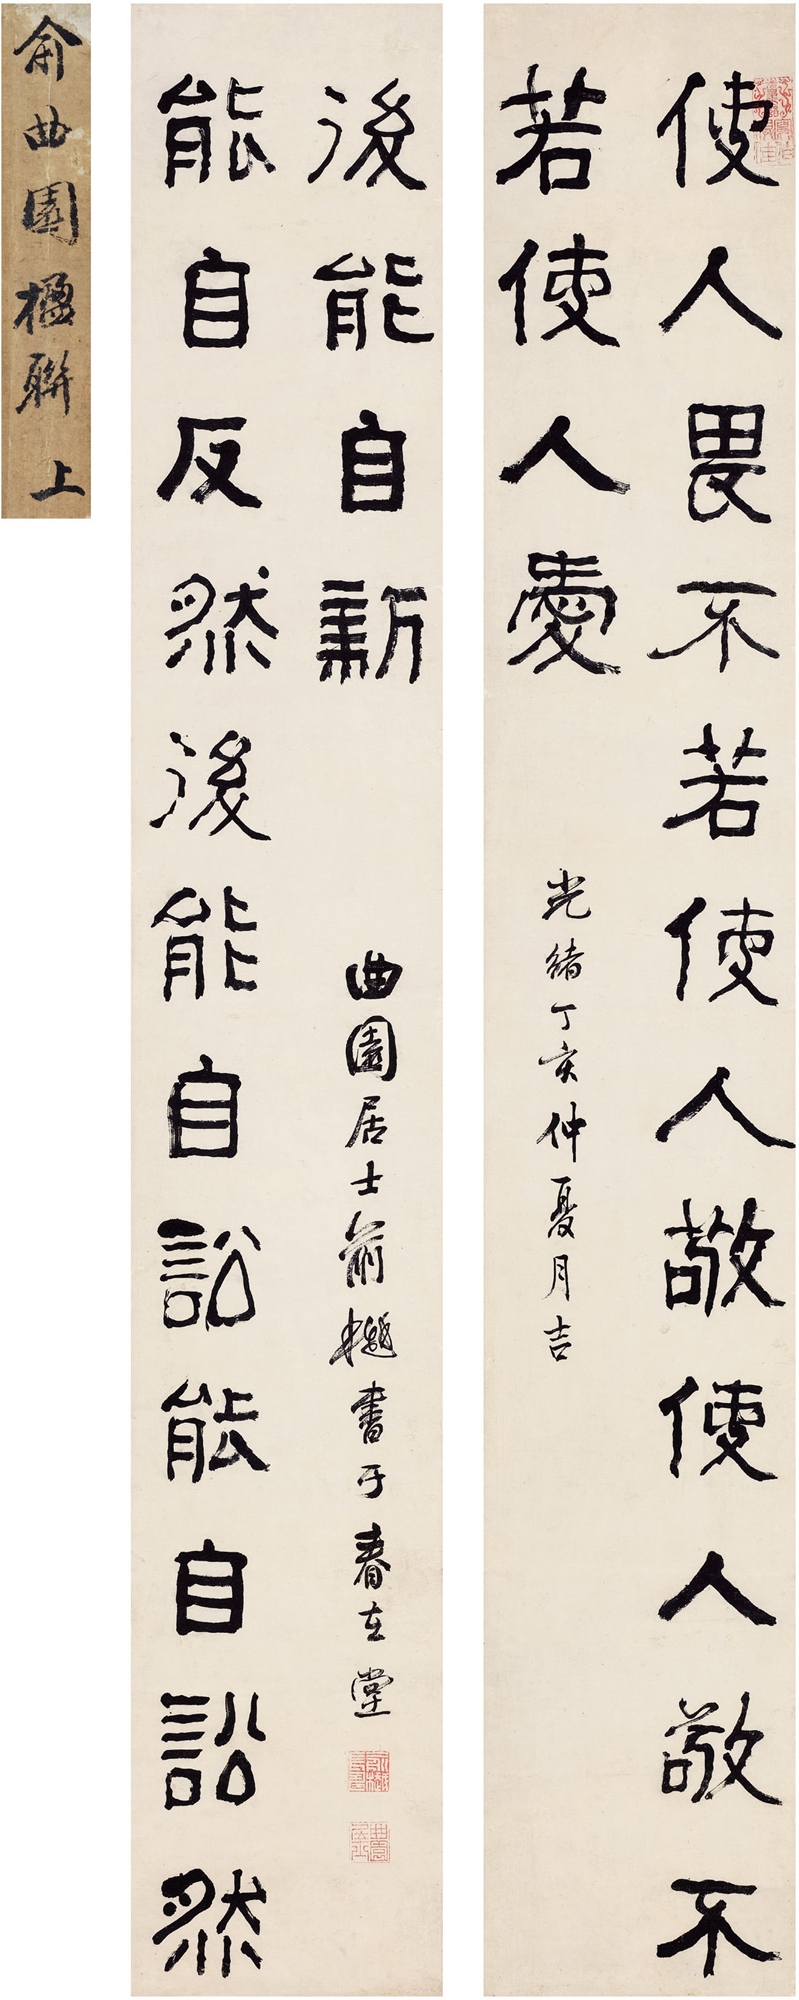 使人畏不若使人敬使人敬不
若使人愛
光緒丁亥仲夏月吉
能自反然後能自訟能自訟然
後能自新
曲園居士俞樾書于春在堂
俞曲園楹聯 上